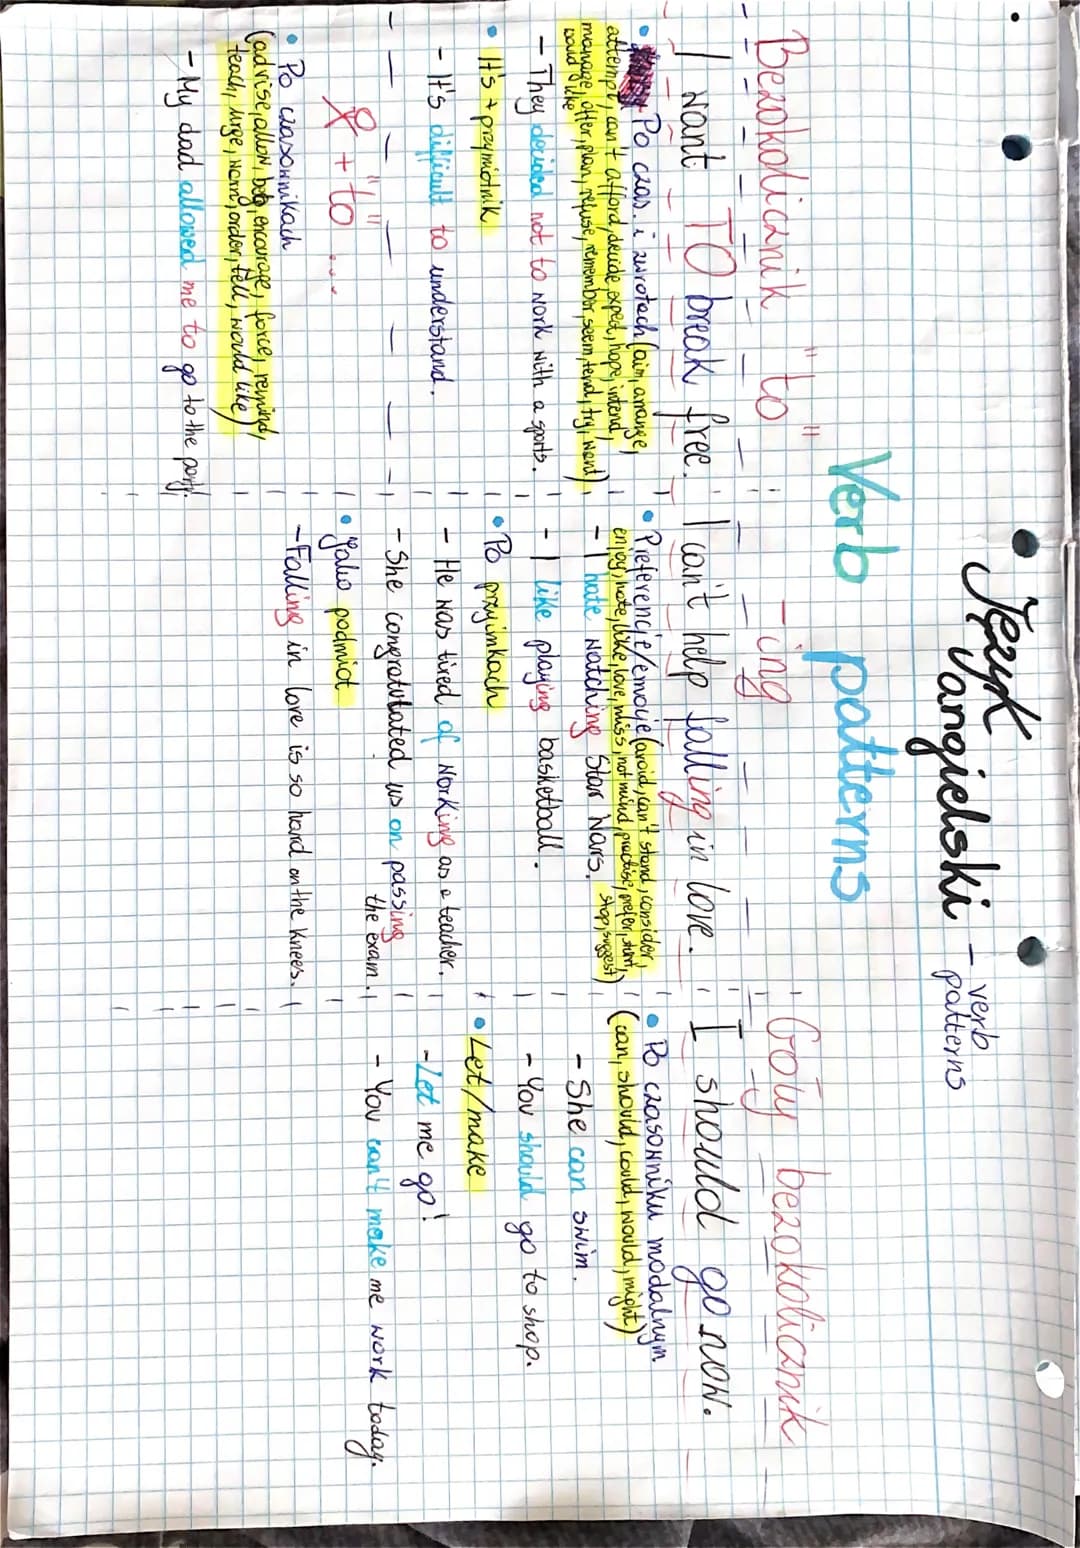 Język
angielski - verb
patterns
Verb patterns
Bezokolicznik "to"
I want TO break free.
• Po czas. i zwrotach (aim, arrange,
attempt, can't afford, decide, expect, hope, intend,
manage, offer, plan, refuse, remember, seem, tend, try, want)
would like
- They decided not to work with a sports.
• It's + przymiotnik
- It's difficult to understand.
+ "to" ...
• Po czasownikach
(advise, allow, beg, encourage, force, remind,
teach, urge, warn, order, tell, would like)
- My dad allowed me to go to the party.
-ing
I can't help falling in love.
• Preferencje/emocje (avoid, can't stand, consider,
enjoy, hate, like, love, miss, not mind, practise, prefer, start,
stop, suggest)
- I hate watching Star Wars.
- I like playing basketball.
• Po przyimkach
- He was tired of working as a teacher.
- She congratulated us on passing
the exam.
• Jako podmiot
- Falling in love is so hard on the knees.
Goły bezokolicznik
I should go now.
• Po czasowniku modalnym
(can, should, could, would, might)
- She can swim.
- You should go to shop.
• Let/make
- Let me go!
- You can't make me work today.